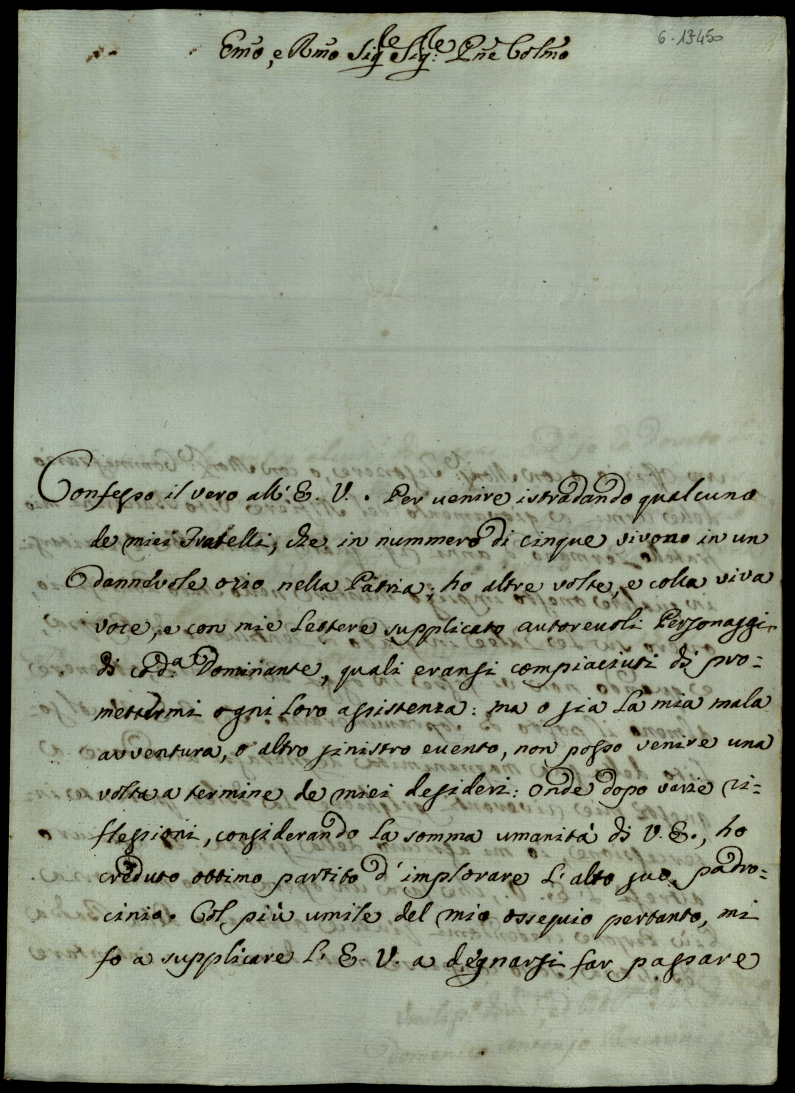 6-13450
Emõ, e Rmõ Sigre Sigre Pñe Colmõ
Confesso il vero all' E. V. . Per venire istradando qualcuno
de miei Fratelli, che in nummero di cinque vivono in un
dannevole ozio nella Patria, ho altre volte, e colla viva
voce, e con mie Lettere supplicato autorevoli Personaggi
di cod.ª Dominante, quali eransi compiaciuti di pro=
mettermi ogni loro assistenza: ma o sia la mia mala
avventura, o altro sinistro evento, non posso venire una
volta a termine de miei desiderj: onde dopo varie ri=
flessioni, considerando la somma umanità di V. E., ho
creduto ottimo partito d'implorare l'alto suo padro=
cinio. Col più umile del mio ossequio pertanto, mi
fo a supplicare l' E. V. a degnarsi far passare